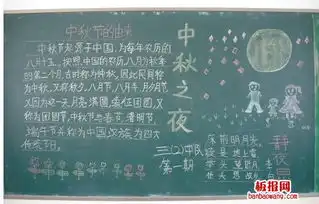 中秋节的由来
中秋节起源于中国,为每年农历的
八月十五。按照中国的农历,八月为秋季
的第二个月,古时称为仲秋,因此民间称
为中秋,又称秋夕、八月节、八月半、月夕、月节
又因为这一天月亮满圆,象征团圆,又
称为团圆节,中秋节与春节、清明节、
端午节并称为中国汉族的四大
传统节日。
中秋之夜
三(2)中队
第一期
静夜思
李白
床前明月光,
疑是地上霜。
举头望明月,
低头思故乡。
板报网
banbaowang.com